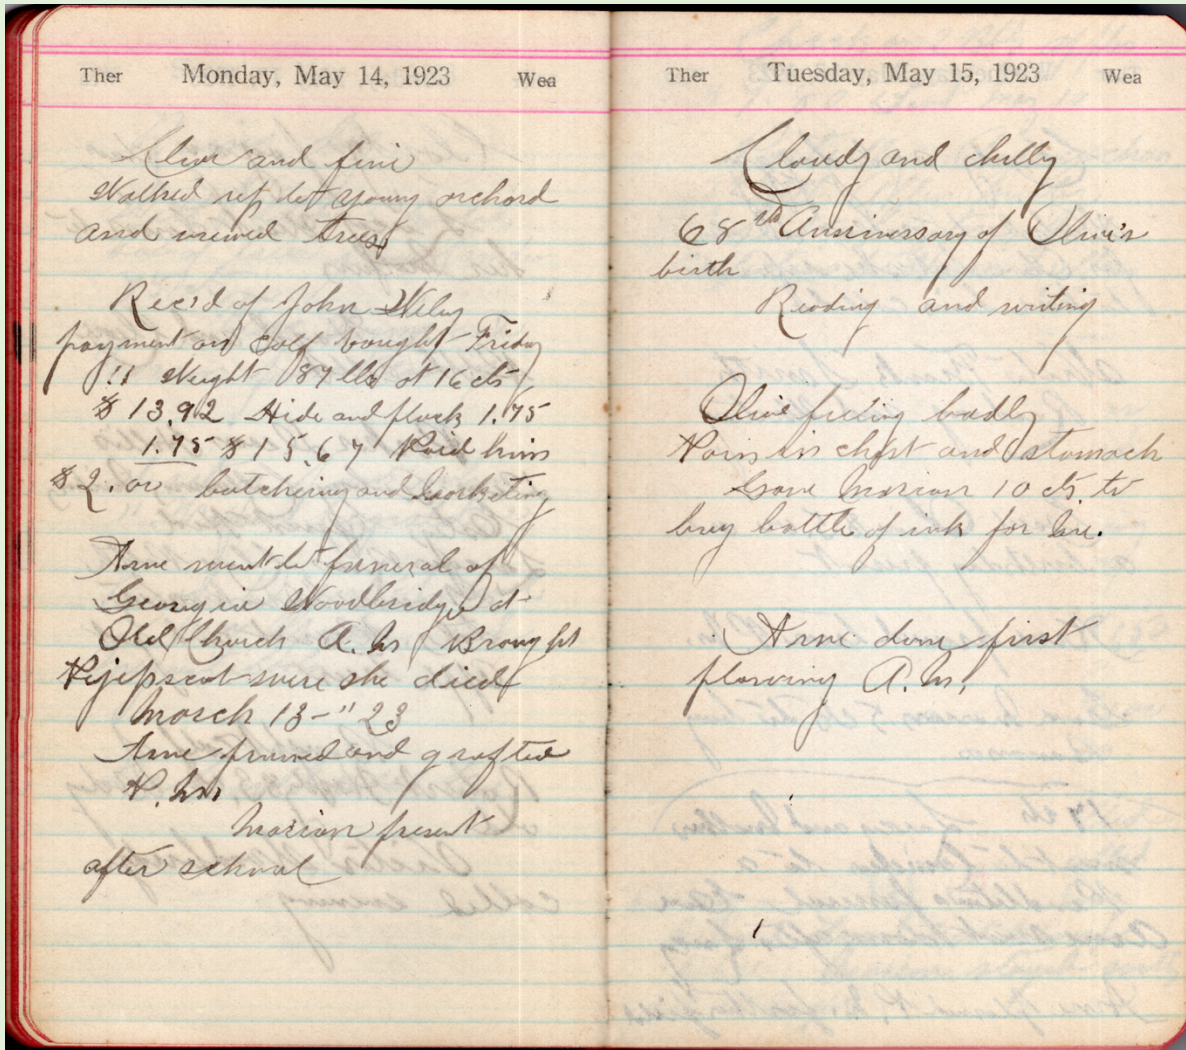 Ther Monday, May 14, 1923 Wea
Clear and fine
Walked up to young orchard
and viewed trees
Rec'd of John Wiley
payment on calf bought Friday
11 Weight 87 lbs at 16 cts
$13.92 Hide and pluck 1.75
1.75 $15.67 Paid him
$2.00 butchering and marketing
Arne went to funeral of
Georgia Woodbridge at
Old Church A.M Brought
Pejepscot were she died
March 13-" 23
Arne pruned and grafted
P.M.
Marion present
after school
Ther Tuesday, May 15, 1923 Wea
Cloudy and chilly
68 Anniversary of Olive's
birth
Reading and writing
Olive feeling badly
Pain in chest and stomach
Gave Marion 10 cts to
buy bottle of ink for me.
Arne done first
plowing A.M.